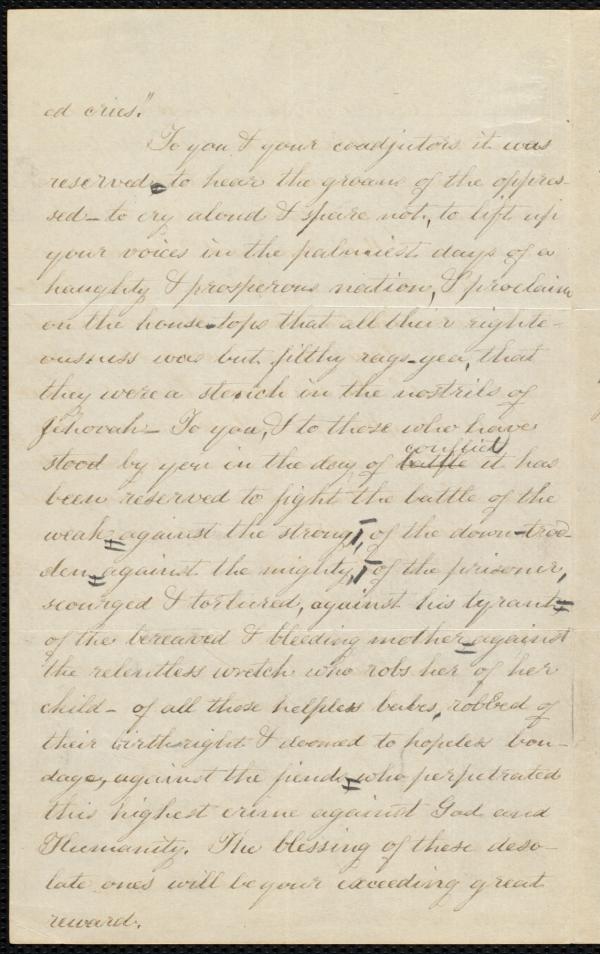 ed cries."
To you & your coadjutors it was
reserved to hear the groans of the oppres-
sed - to cry aloud & spare not, to lift up
your voices in the palmiest days of a
haughty & prosperous nation, & proclaim
on the house-tops that all their righte-
ousness was but filthy rags - yea, that
they were a stench in the nostrils of
Jehovah - To you, & to those who have
stood by you in the day of battle conflict it has
been reserved to fight the battle of the
weak against the strong, of the down-trod-
den against the mighty, of the prisoner,
scourged & tortured, against his tyrants
of the bereaved & bleeding mother against
the relentless wretch who robs her of her
child - of all those helpless babes, robbed of
their birthright & doomed to hopeless bon-
dage, against the fiends who perpetrated
this highest crime against God and
Humanity. The blessing of these deso-
late ones will be your exceeding great
reward.